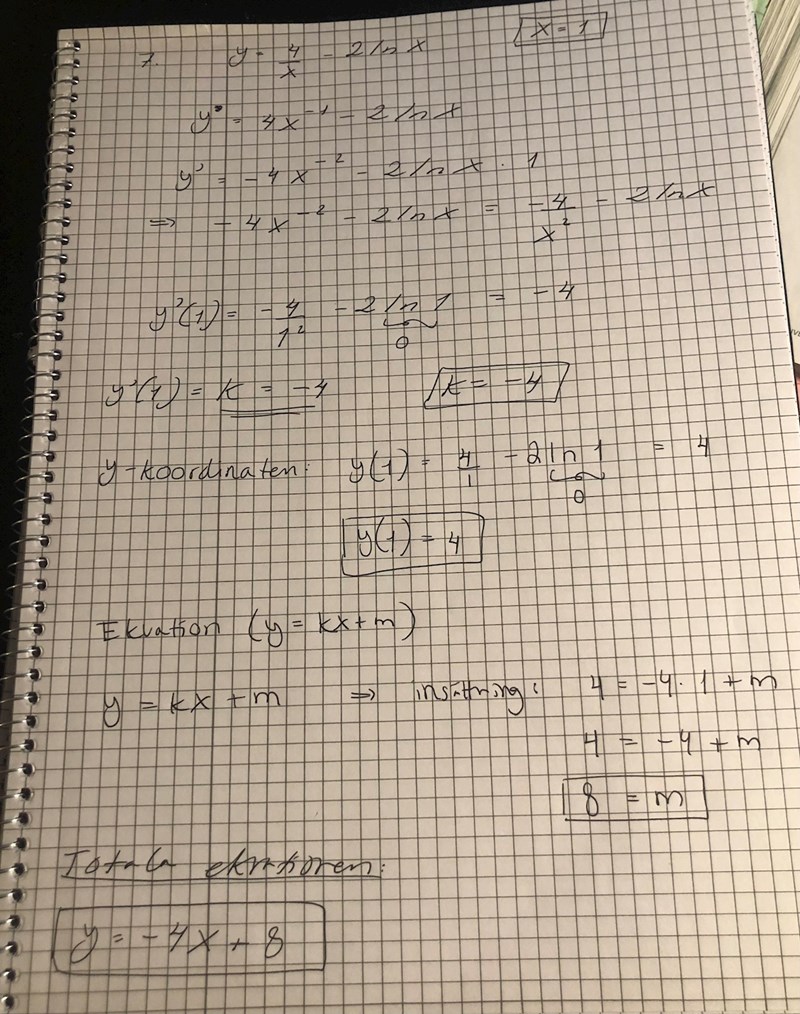 7. y = 4/x - 2 ln x [x = 1]
y = 4x⁻¹ - 2 ln x
y' = -4x⁻² - 2 ln x · 1
⇒ -4x⁻² - 2 ln x = -4/x² - 2 ln x
y'(1) = -4/1² - 2 ln 1 = -4
0
y'(1) = k = -4 k = -4
y-koordinaten: y(1) = 4/1 - 2 ln 1 = 4
0
y(1) = 4
Ekvation (y = kx + m)
y = kx + m ⇒ insättning: 4 = -4 · 1 + m
4 = -4 + m
8 = m
Totala ekvationen:
y = -4x + 8